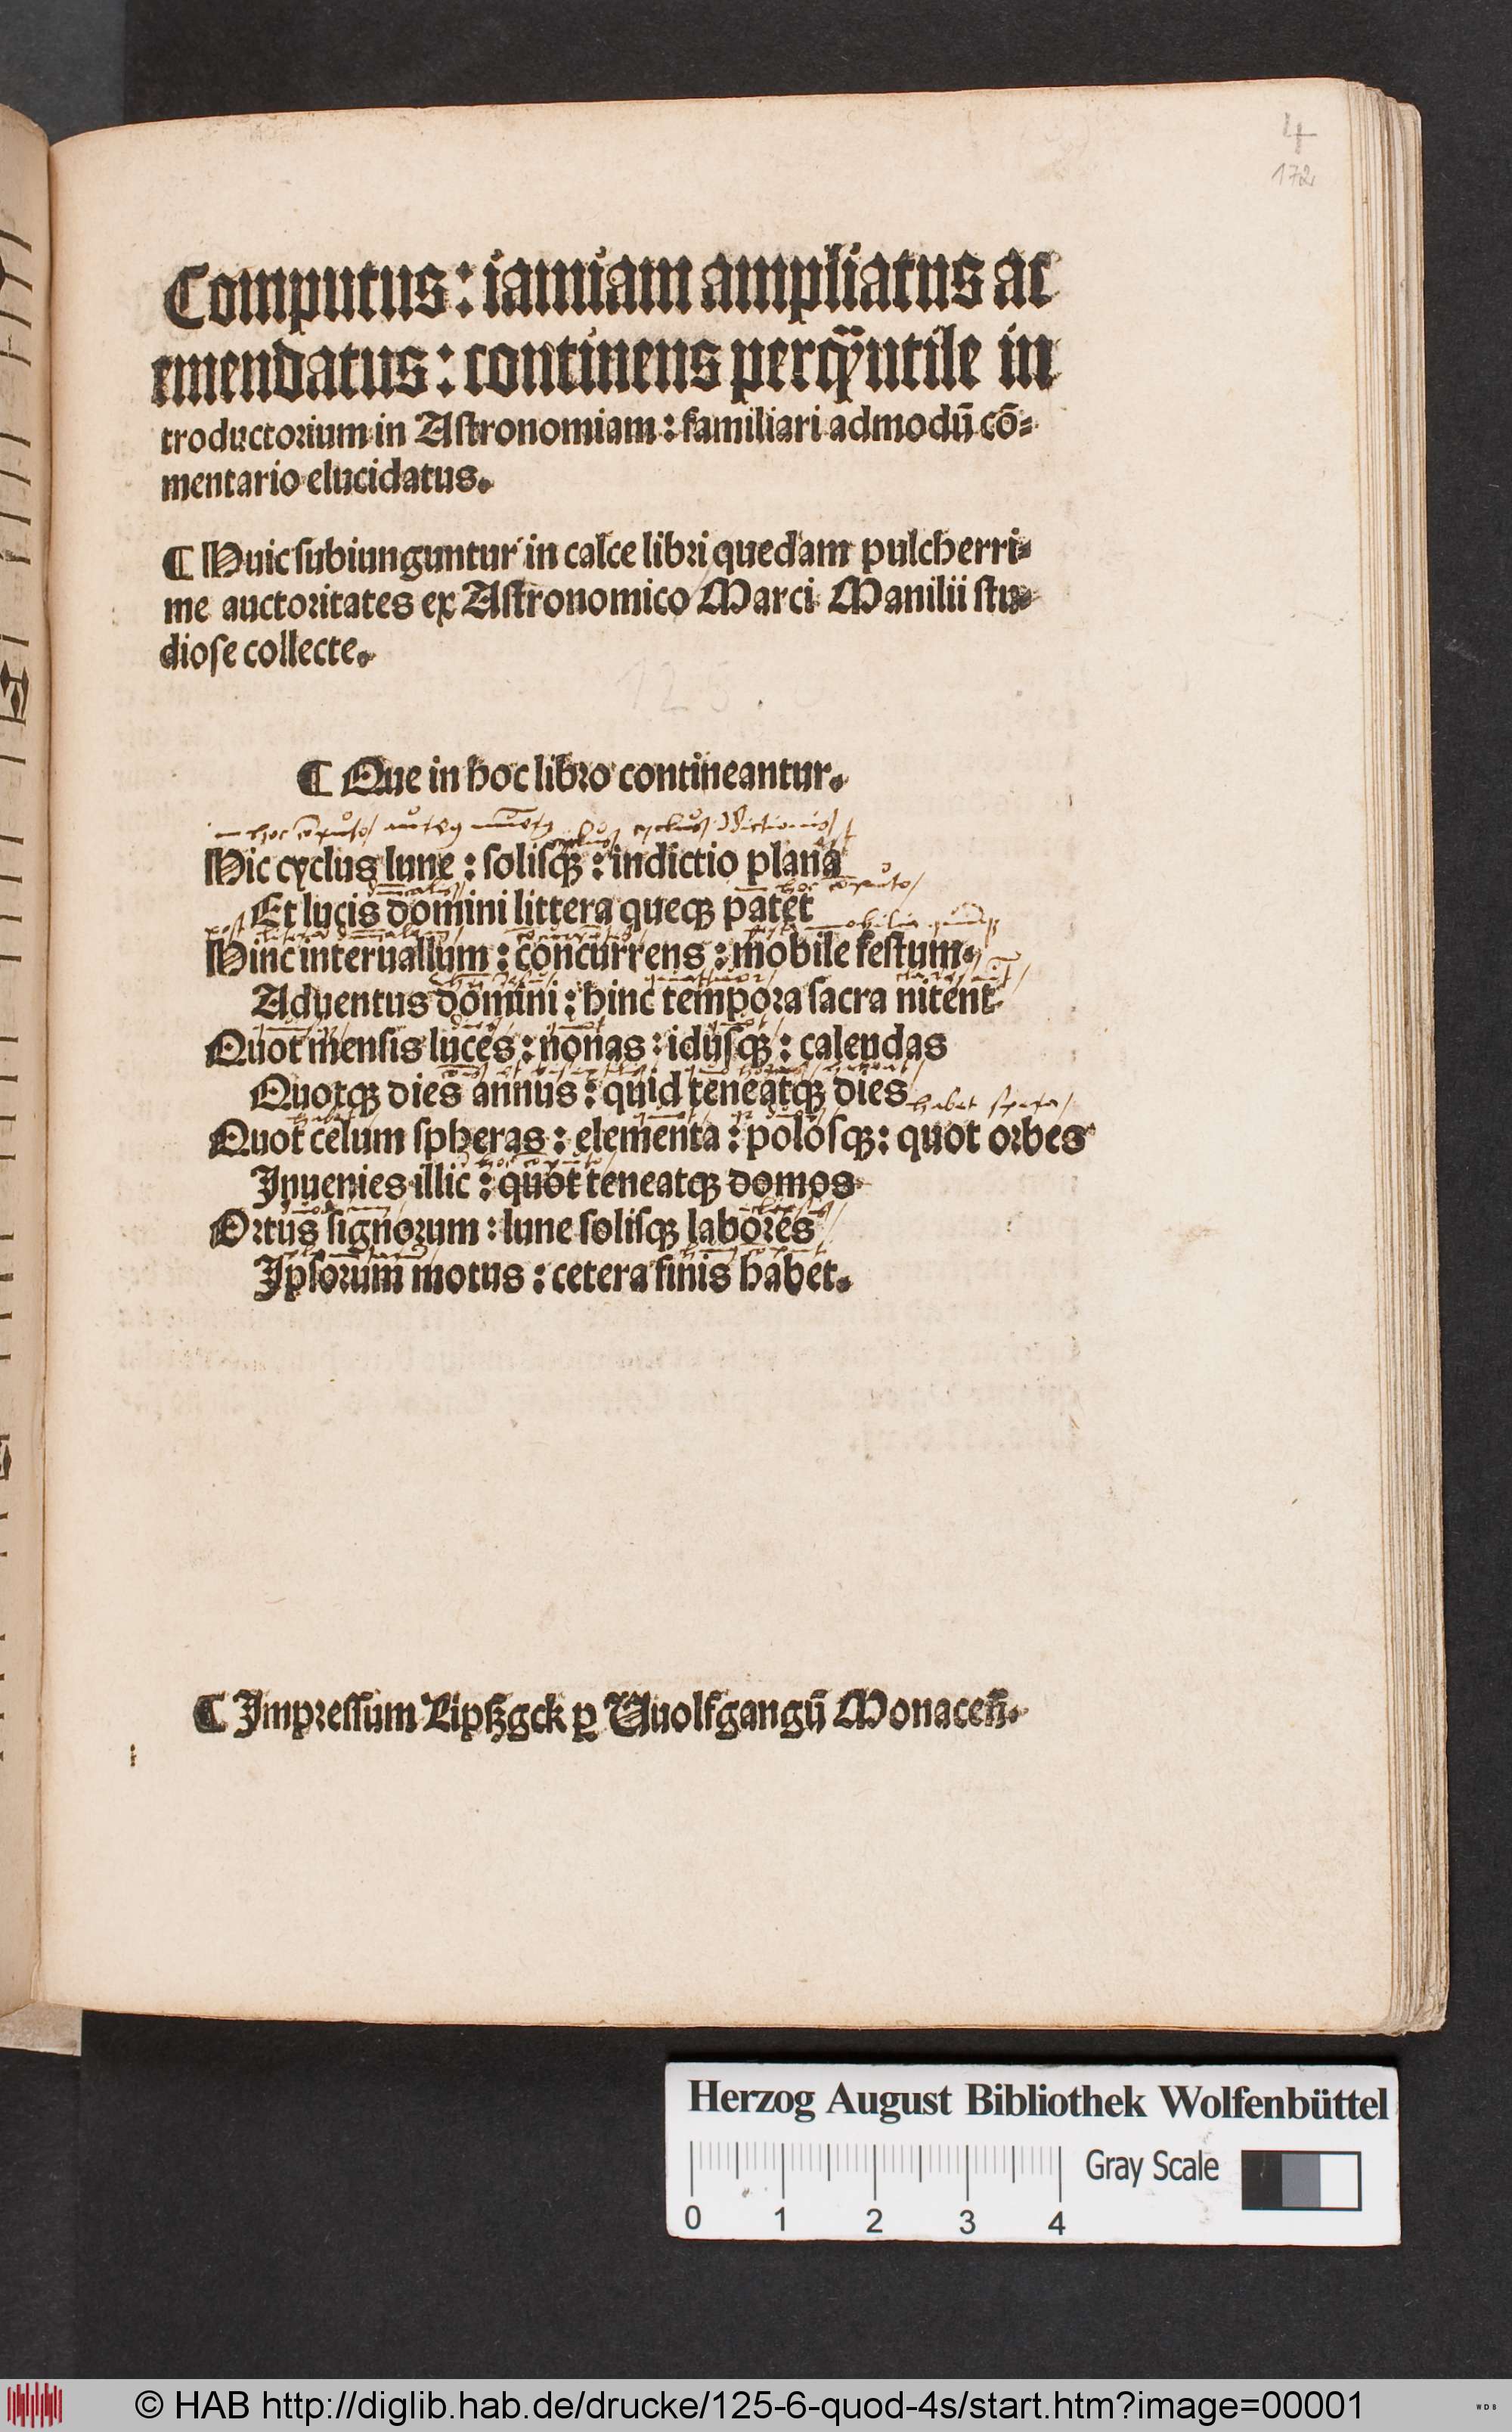 4
172
Computus: iamiam ampliatus ac
emendatus: continens perqꝫutile in
troductorium in Astronomiam: familiari admodū cō-
mentario elucidatus.
¶ Huic subiunguntur in calce libri quedam pulcherri-
me auctoritates ex Astronomico Marci Manilii stu-
diose collecte.
125.
¶ Que in hoc libro contineantur.
Hic cyclus lune: solisqꝫ: indictio plana
hoc computo
Et lucis domini littera queqꝫ patet
post
Hinc interuallum: concurrens: mobile festum.
Aduentus domini: hinc tempora sacra nitent
Quot mensis luces: nonas: idusqꝫ: calendas
Quotqꝫ dies annus: quid teneatqꝫ dies
habet
Quot celum spheras: elementa: polosqꝫ: quot orbes
Inuenies illic: quot teneatqꝫ domos
Ortus signorum: lune solisqꝫ labores
Ipsorum motus: cetera finis habet.
¶ Impressum Liptzgck ꝑ Vuolfgangū Monaceñ.
Herzog August Bibliothek Wolfenbüttel
Gray Scale
0 1 2 3 4
© HAB http://diglib.hab.de/drucke/125-6-quod-4s/start.htm?image=00001
WDB